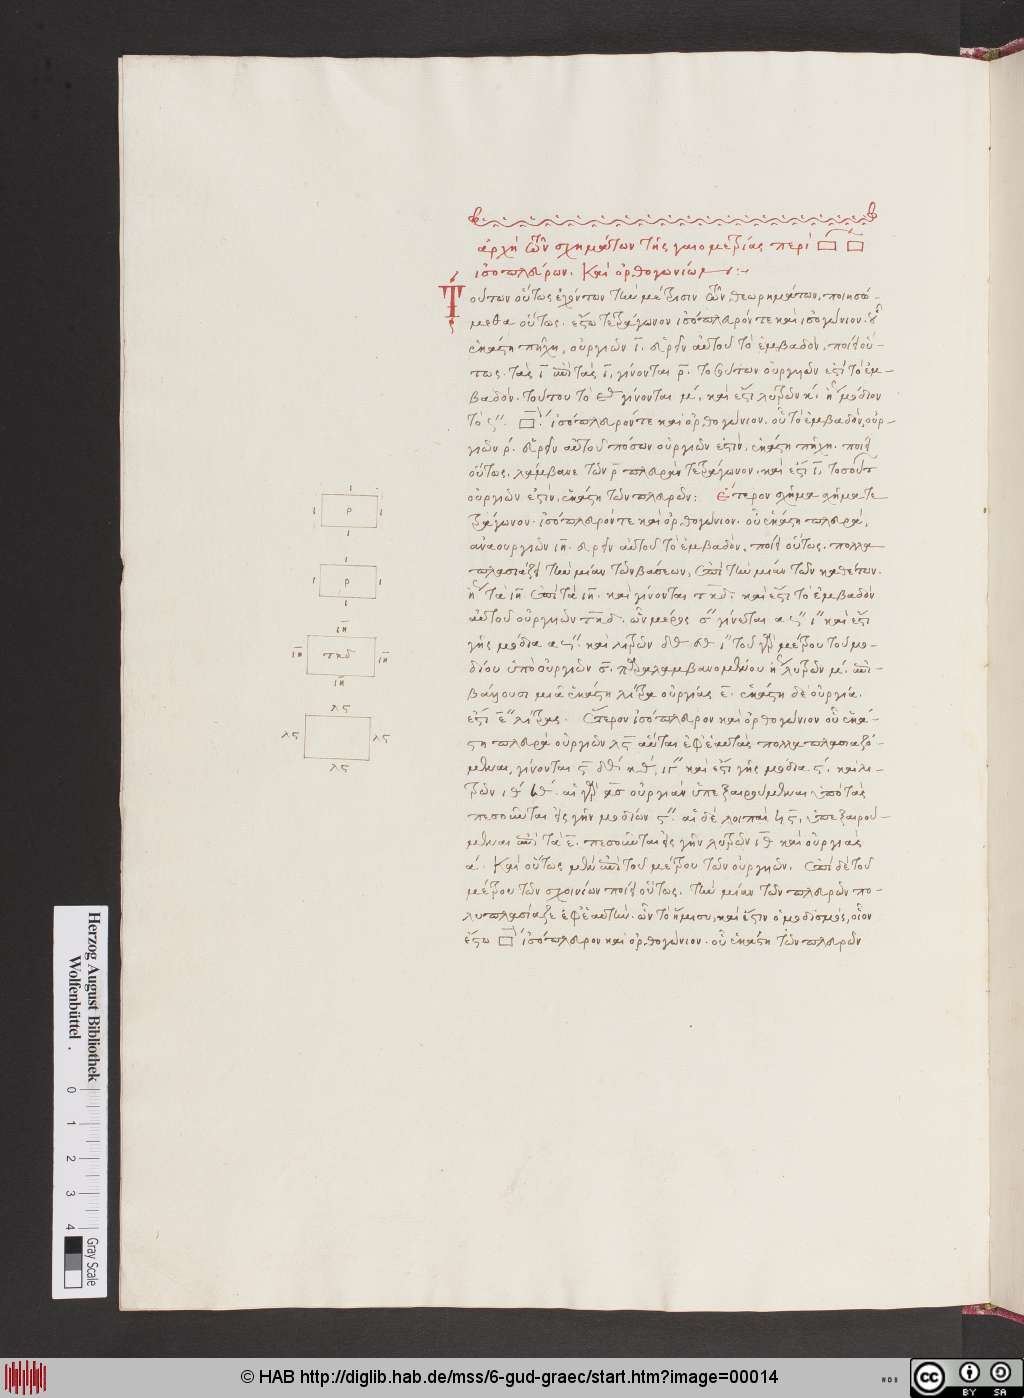 ἀρχὴ τῶν σχημάτων τῆς γαιομετρίας περὶ
ἰσοπλεύρων. Καὶ ὀρθογωνίων
Τούτων οὕτως ἐχόντων τὴν μέτρισιν τῶν θεωρημάτων, ποιησό-
μεθα οὕτως. ἔστω τετράγωνον ἰσόπλευρόν τε καὶ ἰσογώνιον.
ἑκάστη πήχη, οὐργιῶν ι. εὑρεῖν αὐτοῦ τὸ ἐμβαδόν, ποίει οὕ-
τως. τὰς ι ἐπὶ τὰς ι, γίνονται ρ. τοσούτων οὐργιῶν ἐστὶ τὸ ἐμ-
βαδόν. τούτου τὸ
ἰσόπλευρόν τε καὶ ὀρθογώνιον. οὗ τὸ ἐμβαδόν, οὐρ-
γιῶν ρ. εὑρεῖν αὐτοῦ πόσων οὐργιῶν ἐστὶν, ἑκάστη πήχη. ποίει
οὕτως. λάμβανε τῶν ρ πλευρὰν τετράγωνον. καὶ ἔστι ι, τοσούτ
οὐργιῶν ἐστὶν, ἑκάστη τῶν πλευρῶν: Ἕτερον σχῆμα τε
τράγωνον. ἰσόπλευρόν τε καὶ ὀρθογώνιον. οὗ ἑκάστη πλευρά,
ἀνὰ οὐργιῶν ιη. εὑρεῖν αὐτοῦ τὸ ἐμβαδόν. ποίει οὕτως. πολλα
πλασίαζε τὴν μίαν τῶν βάσεων, ἐπὶ τὴν μίαν τῶν καθέτων.
τὰ ιη ἐπὶ τὰ ιη. καὶ γίνονται τκδ. καὶ ἔστι τὸ ἐμβαδὸν
αὐτοῦ οὐργιῶν τκδ. ὧν μέρος
γῆς μόδια
δίου ὑπὸ οὐργιῶν
βάλλουσι μιᾶ ἑκάστη λίτρα οὐργίας ε. ἑκάστη δὲ οὐργία.
ἐστὶ λίτρας. Ἕτερον ἰσόπλευρον καὶ ὀρθογώνιον οὗ ἑκά-
στη πλευρὰ οὐργιῶν λς αὗται ἐφ᾽ ἑαυτὰς πολλαπλασιαζό-
μεναι, γίνονται καὶ ἔστι γῆς μόδια
τρῶν
πεσοῦνται εἰς γῆν μοδίων
μεναι ἐπὶ τὰ ε. πεσοῦνται εἰς γῆν λιτρῶν ιθ καὶ οὐργιᾶς
α. Καὶ οὕτως μὲν ἐπὶ τοῦ μέτρου τῶν οὐργιῶν. Ἐπὶ δὲ τοῦ
μέτρου τῶν σχοινίων ποίει οὕτως. τὴν μίαν τῶν πλευρῶν πο-
λυπλασίαζε ἐφ᾽ ἑαυτήν. ὧν τὸ ἥμισυ, καὶ ἔστιν ὁ μοδισμός, οἷον
ἔστω ἰσόπλευρον καὶ ὀρθογώνιον. οὗ ἑκάστη τῶν πλευρῶν
ι
ι ρ ι
ι
ι
ι ρ ι
ι
ιη
ιη τκδ ιη
ιη
λς
λς λς
λς
Herzog August Bibliothek
Wolfenbüttel .
0 1 2 3 4 Gray Scale
© HAB http://diglib.hab.de/mss/6-gud-graec/start.htm?image=00014
cc BY SA